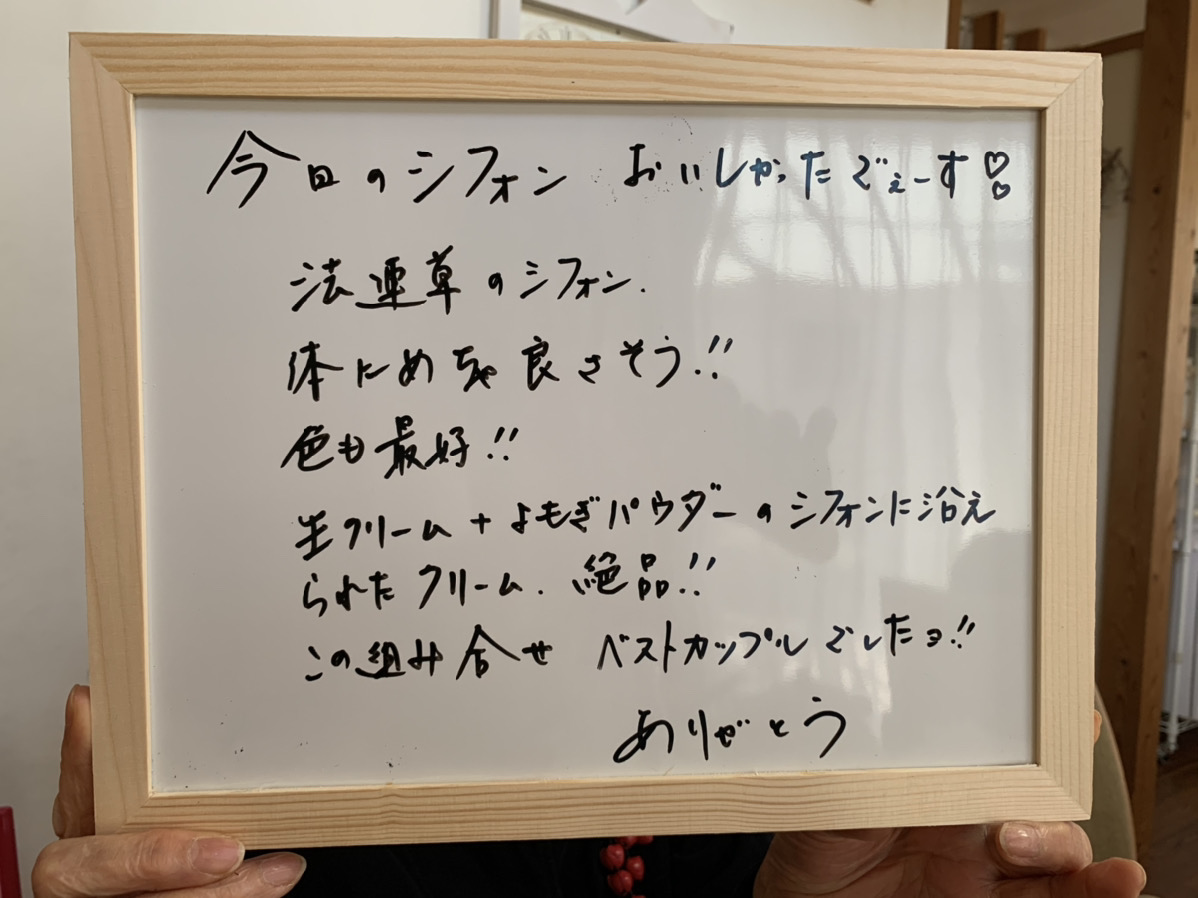 今日のシフォン おいしかったでぇーす♡♡
法連草のシフォン.
体にめちゃ良さそう!!
色も最好!!
生クリーム+よもぎパウダーのシフォンに沿え
られたクリーム. 絶品!!
この組み合せ ベストカップルでしたヨ!!
ありがとう